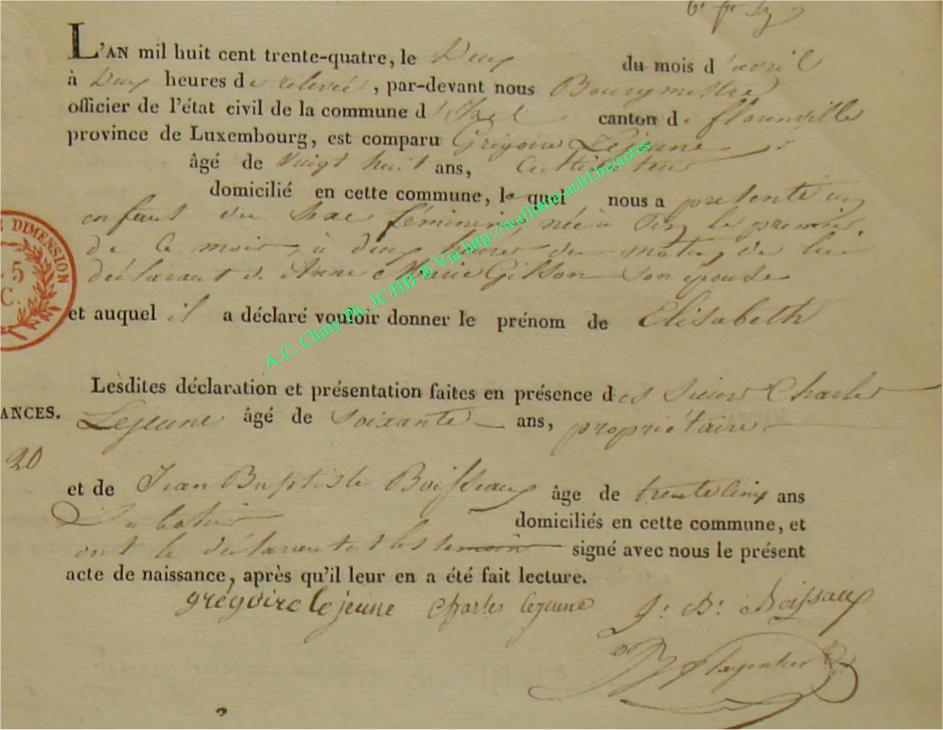 L'AN mil huit cent trente-quatre, le Deux du mois d'avril
à Deux heures de relevée, par-devant nous Bourgmestre
officier de l'état civil de la commune d'Izel canton de florenville
province de Luxembourg, est comparu Grégoire Lejeune
âgé de vingt huit ans, Cultivateur
domicilié en cette commune, lequel nous a présenté un
enfant du sexe féminin née à Izel le premier
de ce mois, à deux heures du matin, de lui
déclarant & Anne Marie Gilson son épouse
et auquel il a déclaré vouloir donner le prénom de Elisabeth
Lesdites déclaration et présentation faites en présence des Sieur Charles
ANCES.
Lejeune âgé de soixante ans, propriétaire
20
et de Jean Baptiste Boisseaux âge de trente cinq ans
Sabotier domiciliés en cette commune, et
ont le déclarant et les temoin signé avec nous le présent
acte de naissance, après qu'il leur en a été fait lecture.
grégoire Lejeune Charles Lejeune J. B. Boissaux
DIMENSION
5
C.
A.C. Chiny Ph. JCHB ® Via http://wallonia.aubt.be/actes